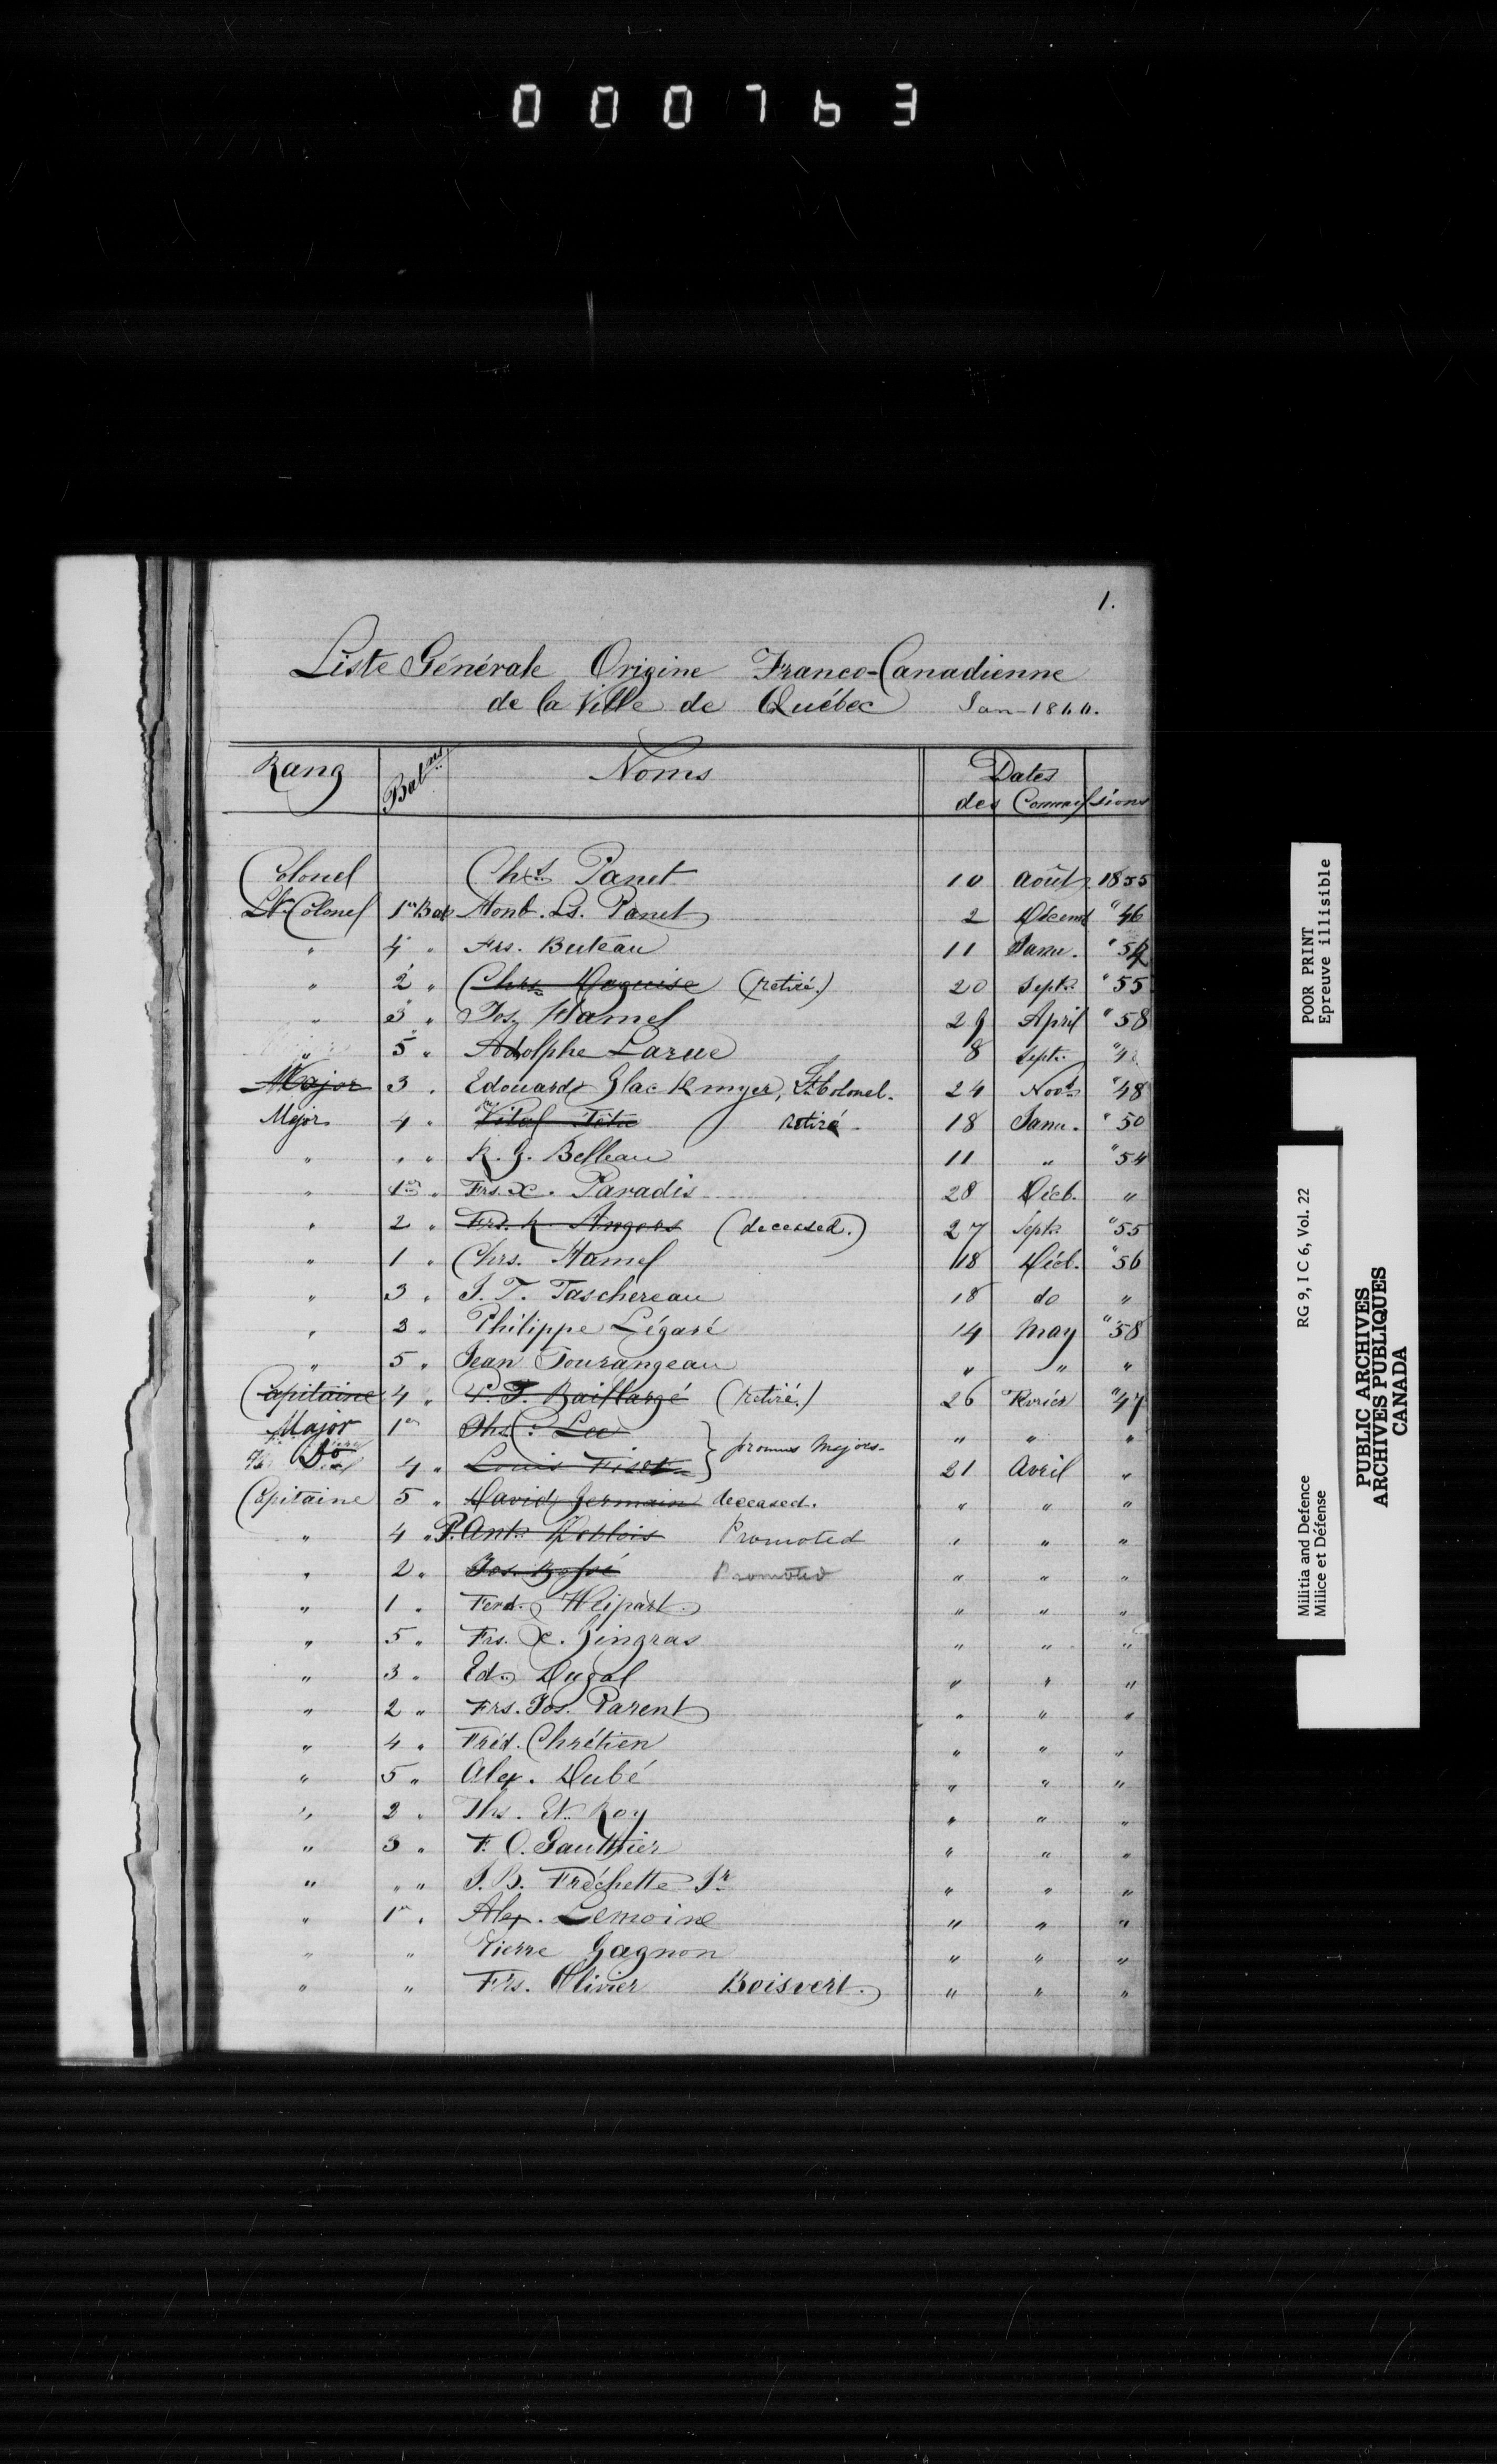 000763
1.
Liste Générale Origine Franco-Canadienne
de la Ville de Québec Jan-1860.
Rang Batns Noms Dates des Commissions
Colonel Chs Panet 10 Août 1855
Lt Colonel 1er Bat Honb. Ls. Panet 2 Décemb " 46
" 4 " Frs. Buteau 11 Janu. " 54
" 2 " (retiré.) 20 Septr " 55
" 3 " Jos. Hamel 29 April " 58
5 " Adolphe Larue 8 Septr. "
" Major 3 " Edouard Glackmyer, Lt Colonel. 24 Novr " 48
Major 4 " Vital Têtu retiré 18 Janu. " 50
" " " R. G. Belleau 11 " " 54
" 1er " Frs. X. Paradis 28 Décb. "
" 2 " Frs. R. Angers (deceased.) 27 Septr " 55
" 1 " Chrs. Hamel 18 Décb. " 56
" 3 " J. T. Taschereau 18 do "
" 3 " Philippe Légaré 14 May " 58
" 5 " Jean Tourangeau " " "
Capitaine 4 " P. F. Baillargé (retiré.) 26 Février " 47
Major 1er Ths. C. Lee } promus Majors " " "
Do 4 " Louis Fiset 21 Avril "
Capitaine 5 " David Germain deceased. " " "
" 4 " P. Ant. Deblois Promoted " " "
" 2 " Jos. Bossé Promoted " " "
" 1 " Ferd. " " "
" 5 " Frs. X. Gingras " " "
" 3 " Ed. Dugal " " "
" 2 " Frs. Jos. Parent " " "
" 4 " Fréd. Chrétien " " "
" 5 " Alex. Dubé " " "
" 2 " Ths. Et. Roy " " "
" 3 " F. O. Gauthier " " "
" " " J. B. Fréchette Jr " " "
" 1er " Alex. Lemoine " " "
" " Pierre Gagnon " " "
" " Frs. Olivier Boisvert. " " "
POOR PRINT
Epreuve illisible
RG 9, I C 6, Vol. 22
Militia and Defence
Milice et Défense
PUBLIC ARCHIVES
ARCHIVES PUBLIQUES
CANADA